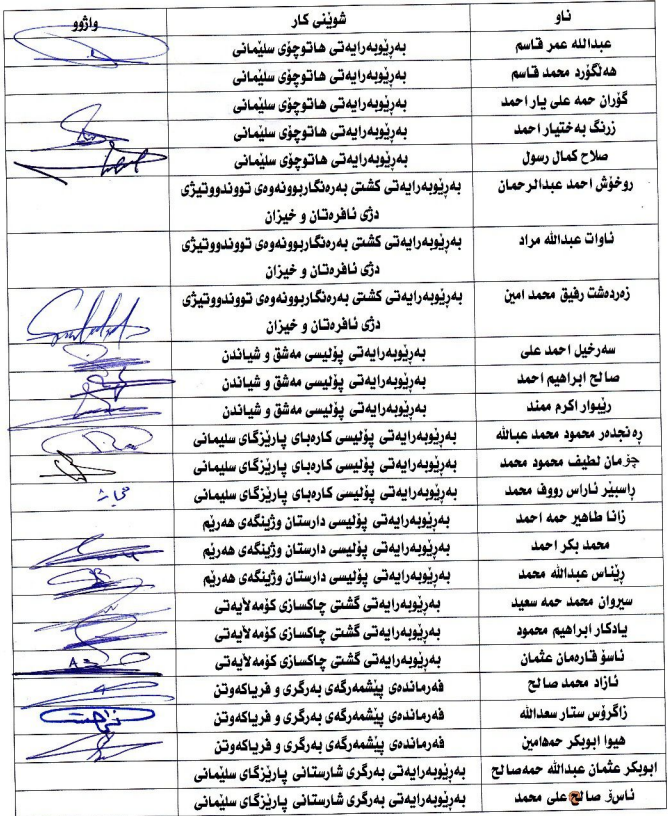 ناو شوێنی کار واژوو
عبدالله عمر قاسم بەڕێوبەرایەتی هاتوچۆی سلێمانی
هەلگۆرد محمد قاسم بەڕێوبەرایەتی هاتوچۆی سلێمانی
گۆران حمه علی یار احمد بەڕێوبەرایەتی هاتوچۆی سلێمانی
زرنگ بەختیار احمد بەڕێوبەرایەتی هاتوچۆی سلێمانی
صلاح کمال رسول بەڕێوبەرایەتی هاتوچۆی سلێمانی
روخۆش احمد عبدالرحمان بەڕێوبەرایەتی کشتی بەرەنگاربوونەوەی تووندووتیژی
دژی ئافرەتان و خیزان
ئاوات عبدالله مراد بەڕێوبەرایەتی کشتی بەرەنگاربوونەوەی تووندووتیژی
دژی ئافرەتان و خیزان
زەردەشت رفیق محمد امین بەڕێوبەرایەتی کشتی بەرەنگاربوونەوەی تووندووتیژی
دژی ئافرەتان و خیزان
سەرخیل احمد علی بەڕێوبەرایەتی پۆلیسی مەشق و شیاندن
صالح ابراهیم احمد بەڕێوبەرایەتی پۆلیسی مەشق و شیاندن
رێبوار اکرم ممند بەڕێوبەرایەتی پۆلیسی مەشق و شیاندن
ڕەنجدەر محمود محمد عبالله بەڕێوبەرایەتی پۆلیسی کارەبای پارێزگای سلیمانی
چۆمان لطیف محمود محمد بەڕێوبەرایەتی پۆلیسی کارەبای پارێزگای سلیمانی
ڕاسبێر ئاراس رووف محمد بەڕێوبەرایەتی پۆلیسی کارەبای پارێزگای سلیمانی
زانا طاهیر حمه احمد بەڕێوبەرایەتی پۆلیسی دارستان وژینگەی هەرێم
محمد بکر احمد بەڕێوبەرایەتی پۆلیسی دارستان وژینگەی هەرێم
ڕێناس عبدالله محمد بەڕێوبەرایەتی پۆلیسی دارستان وژینگەی هەرێم
سیروان محمد حمه سعید بەڕێوبەرایەتی گشتی چاکسازی کۆمەلایەتی
یادکار ابراهیم محمود بەڕێوبەرایەتی گشتی چاکسازی کۆمەلایەتی
ئاسۆ قارەمان عثمان بەڕێوبەرایەتی گشتی چاکسازی کۆمەلایەتی
ئازاد محمد صالح فەرماندەی پێشمەرگەی بەرگری و فریاکەوتن
زاگرۆس ستار سعدالله فەرماندەی پێشمەرگەی بەرگری و فریاکەوتن
هیوا ابوبکر حمەامین فەرماندەی پێشمەرگەی بەرگری و فریاکەوتن
ابوبکر عثمان عبدالله حمەصالح بەڕێوبەرایەتی بەرگری شارستانی پارێزگای سلێمانی
ئاسۆ صالح علی محمد بەڕێوبەرایەتی بەرگری شارستانی پارێزگای سلێمانی